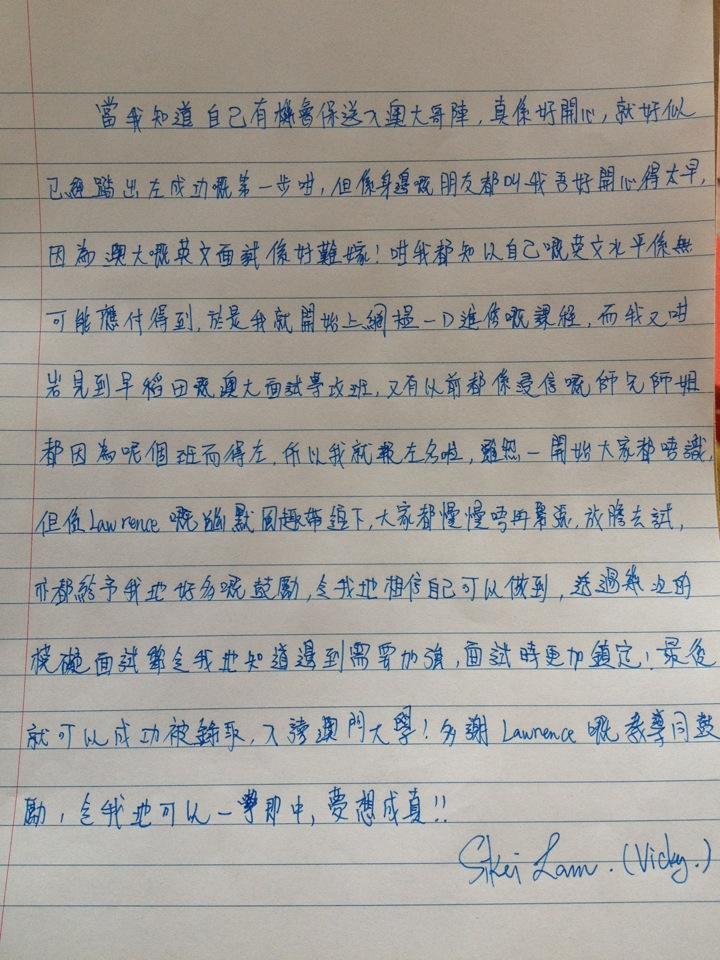 當我知道自己有機會保送入澳大哥陣,真係好開心,就好似
已經踏出左成功嘅第一步咁,但係身邊嘅朋友都叫我吾好開心得太早,
因為澳大嘅英文面試係好難嫁!咁我都知以自己嘅英文水平係無
可能應付得到,於是我就開始上網搵一D進修嘅課程,而我又咁
岩見到早稻田嘅澳大面試學攻班,又有以前都係受信嘅師兄師姐
都因為呢個班而得左,所以我就報左名啦,雖然一開始大家都唔識,
但係Lawrence嘅幽默風趣帶領下,大家都慢慢唔再緊張,放膽去試,
亦都給予我地好多嘅鼓勵,令我地相信自己可以做到,透過幾次的
模擬面試都令我地知道邊到需要加強,面試時更加鎮定!最後
就可以成功被錄取,入讀澳門大學!多謝Lawrence嘅教導同鼓
勵,令我地可以一擊即中,夢想成真!!
Sikei Lam.(Vicky.)